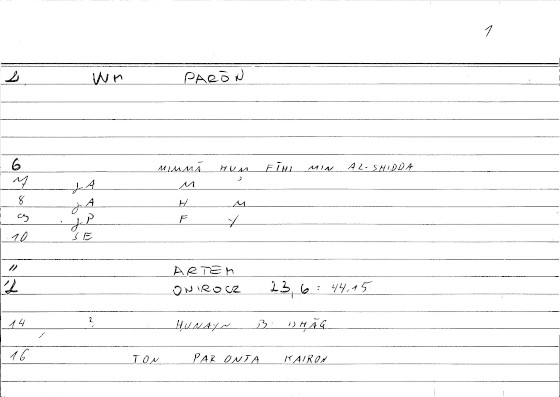 1
WM PARŌN
6 MIMMĀ HUM FĪHI MIN AL-SHIDDA
7 gA M
8 gA H M
9 gP F Y
10 SE
11 ARTEM
12 ONIROCR 23,6 : 44.15
14 ? HUNAYN B ISHĀG
16 TON PARONTA KAIRON